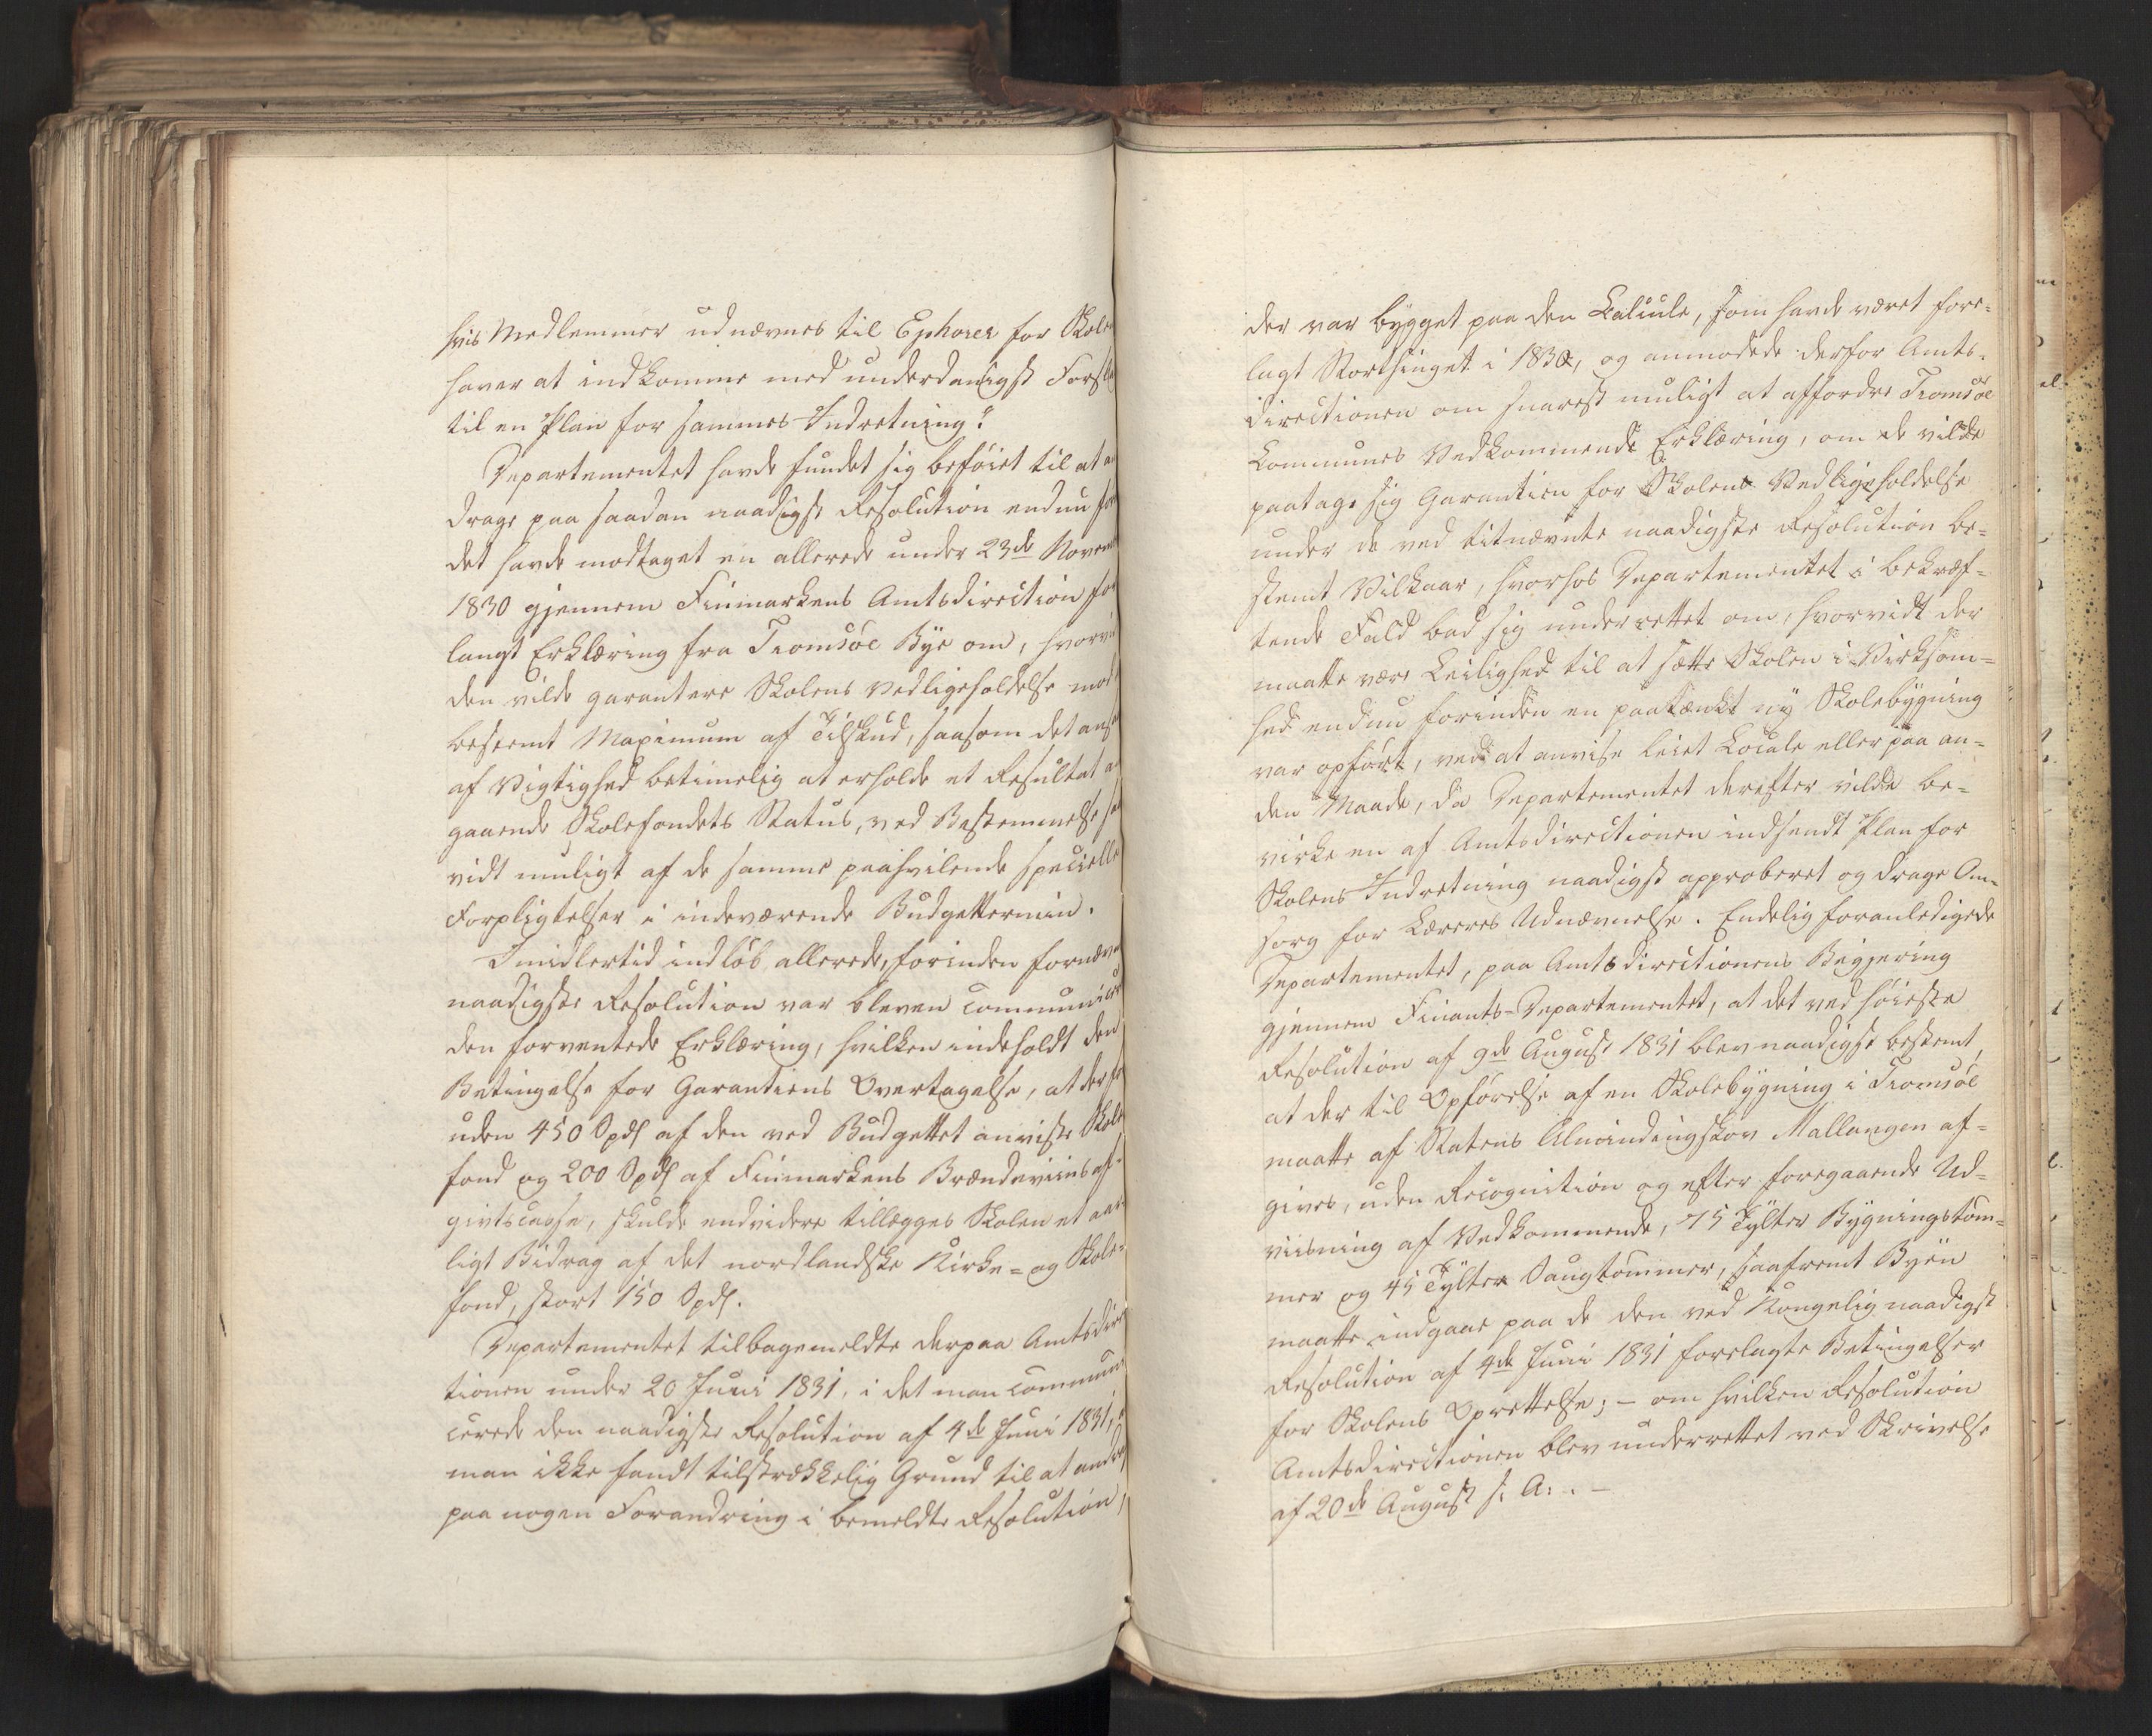 hvis Medlemmer udnævnes til Ephorer for Skolen
haver at indkomme med underdanigst Forsla
til en Plan for sammes Indretning?
Departementet havde fundet sig beføiet til at an
drage paa saadan naadigst Resolution endnu før
det havde modtaget en allerede under 23de Novemb
1830 gjennem Finmarkens Amtsdirection for
langt Erklæring fra Tromsöe Bye om, hvorvi
den vilde garantere Skolens Vedligeholdelse mod
bestemt Maximum af Tilskud, saasom det ansa
af Vigtighed betimelig at erholde et Resultat an
gaaende Skolefondets Status, ved Bestemmelse saa
vidt muligt af de samme paahvilende specielle
Forpligtelser i indeværende Budgettermin.
Imidlertid indløb allerede, forinden fornævn
naadigste Resolution var bleven communicer
den forventede Erklæring, hvilken indeholdt den
Betingelse for Garantiens Overtagelse, at der for
uden 450 Spdl af den ved Budgettet anviste Skole
fond og 200 Spdl af Finmarkens Brændeviinsaf-
givtscasse, skulde endvidere tillægges Skolen et aar-
ligt Bidrag af det nordlandske Kirke- og Skole-
fond, stort 150 Spdl.
Departementet tilbagemeldte derpaa Amtsdirec
tionen under 20 Juni 1831, i det man communi
cerede den naadigste Resolution af 4de Juni 1831, at
man ikke fandt tilstrækkelig Grund til at andrage
paa nogen Forandring i bemeldte Resolution,
der var bygget paa den Calcule, som havde været fore-
lagt Storthinget i 1830, og anmodede derfor Amts-
directionen om snarest muligt at affordre Tromsöe
Communes Vedkommende Erklæring, om de vilde
paatage sig Garantien for Skolens Vedligeholdelse
under de ved titnævnte naadigste Resolution be-
stemt Vilkaar, hvorhos Departementet i bekræf-
tende Fald bad sig underrettet om, hvorvidt der
maatte være Leilighed til at sætte Skolen i Virksom-
hed endnu forinden en paatænkt ny Skolebygning
var opført, ved at anvise leiet Locale eller paa an-
den Maade, da Departementet derefter vilde be-
virke en af Amtsdirectionen indsendt Plan for
Skolens Indretning naadigst approberet og drage Om-
sorg for Læreres Udnævnelse. Endelig foranledigede
Departementet, paa Amtsdirectionens Begjering
gjennem Finants-Departementet, at det ved høieste
Resolution af 9de August 1831 blev naadigst bestemt
at der til Opførelse af en Skolebygning i Tromsöe
maatte af Statens Almindingskov Mallangen af-
gives, uden Recognition og efter foregaaende Ud-
viisning af Vedkommende, 75 Tylter Bygningstøm-
mer og 45 Tylter Saugtømmer, saafremt Byen
maatte indgaae paa de den ved Kongelig naadigst
Resolution af 4de Juni 1831 forelagte Betingelser
for Skolens Oprettelse; – om hvilken Resolution
Amtsdirectionen blev underrettet ved Skrivelse
af 20de August s. A. . –